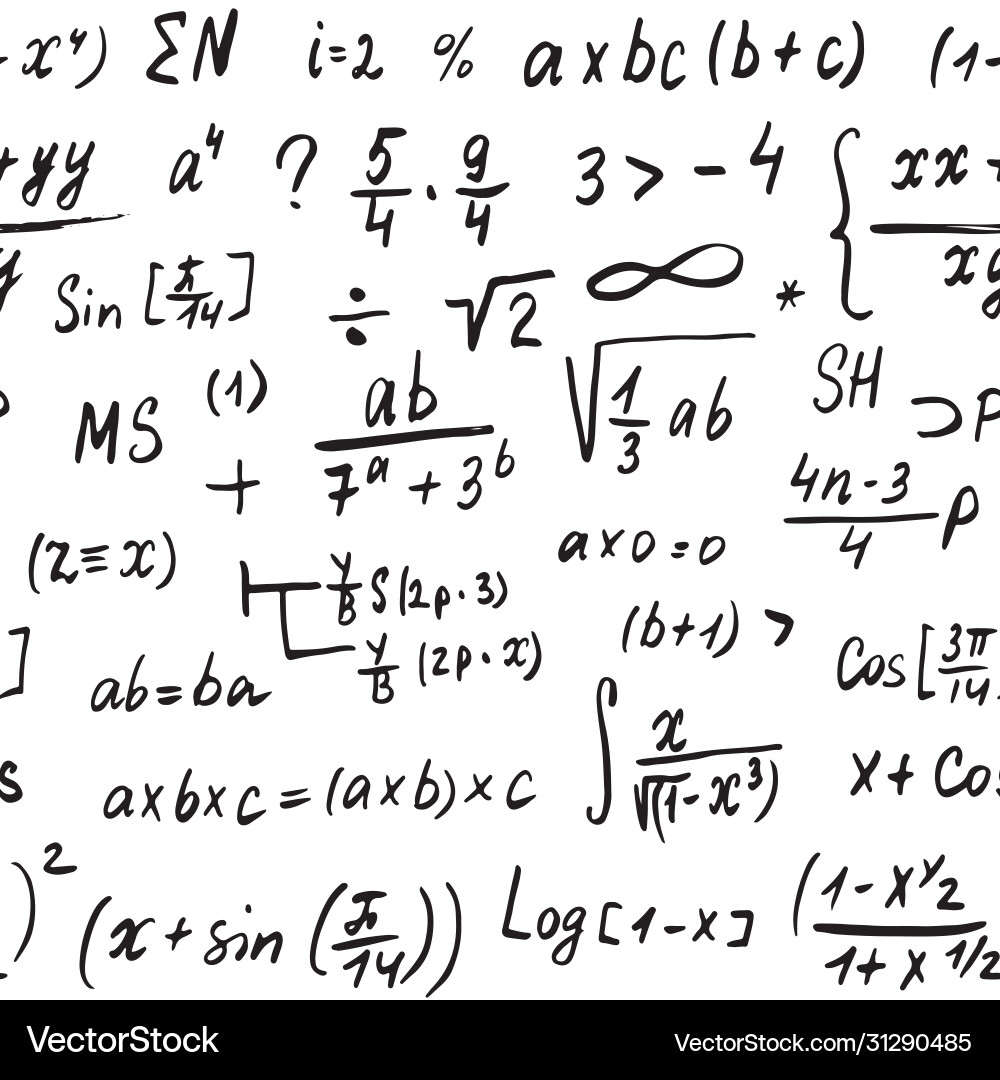 - x⁴) ΣN i=2 % a x bc (b + c) (1-
+ yy a⁴ ? 5/4 · 9/4 3 > - 4 { xx +
y Sin [π/14] ÷ √2 ∞ * xy
MS (1) ab/(7ᵃ + 3ᵇ) √(1/3 ab) SH ⊃P
+ (4n-3)/4 P
(2≡x) Y/B S(2p·3) a x 0 = 0
] ab=ba Y/B (2p·x) (b+1) > Cos [3π/14
s a x b x c = (a x b) x c ∫ x/√((1-x³) x + Cos
)² (x + sin (π/14)) Log [1-x] (1-x^y2/1+x^1/2
VectorStock VectorStock.com/31290485